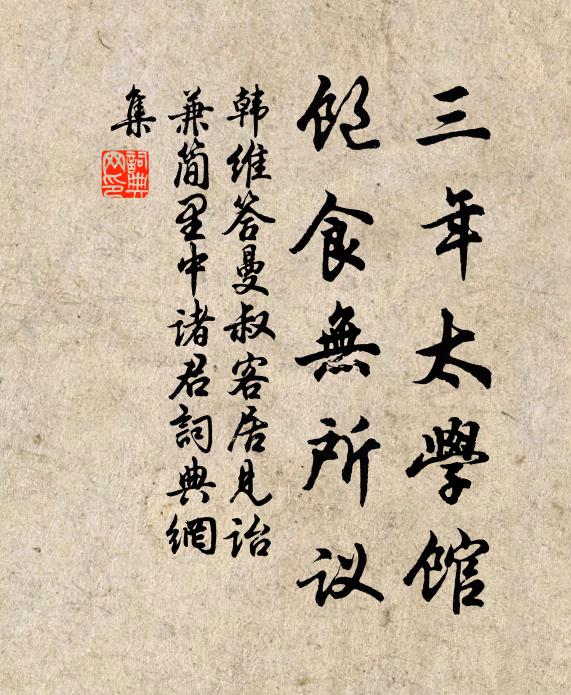 三年太學館
飽食無所议
韩维答曼叔客居见诒
兼简里中诸君詞典網
集
詞典
网印